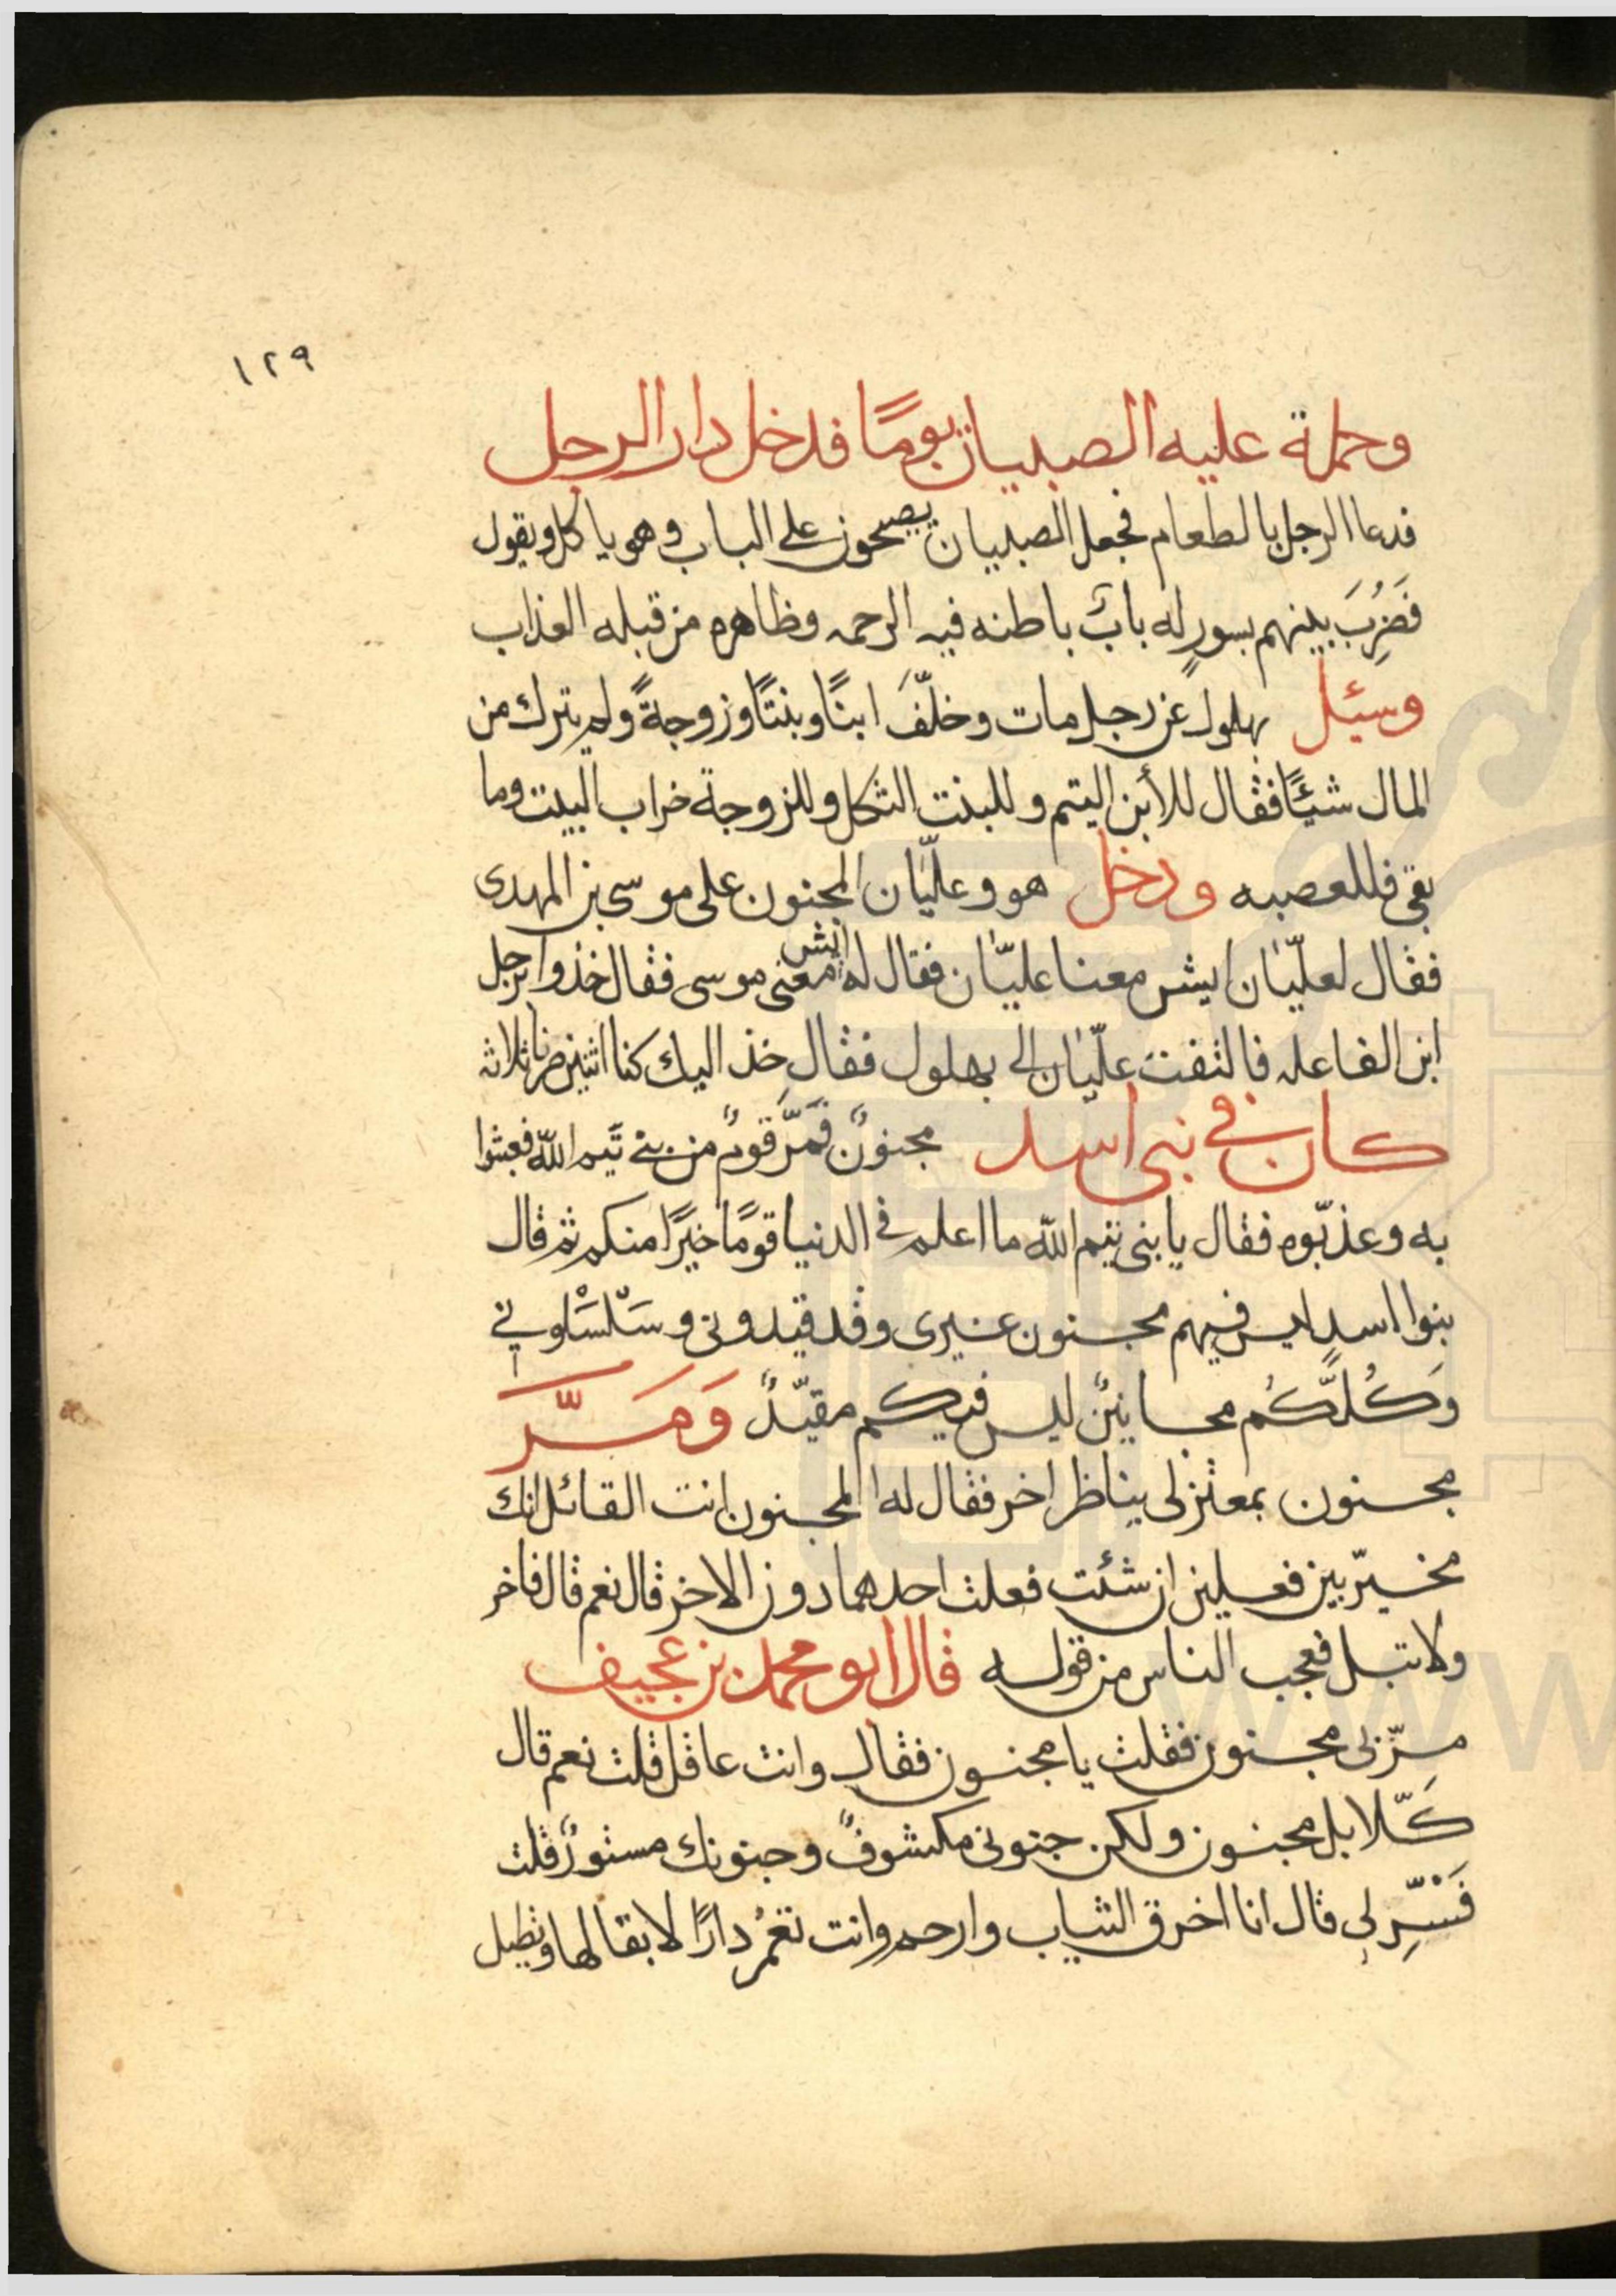 ١٢٩
وحملة عليه الصبيان يومًا فدخل دار الرجل
فدعا الرجل بالطعام فجعل الصبيان يصيحون على الباب وهو ياكل ويقول
فَضُرِبَ بينهم بسورٍ له بابٌ باطنه فيه الرحمه وظاهره من قبله العذاب
وسئل بهلول عن رجل مات وخلّفَ ابنًا وبنتًا وزوجةً ولم يترك من
المال شيئًا فقال للأبن اليتم وللبنت الثكل وللزوجة خراب البيت وما
بقى فللعصبه ودخل هو وعليّان المجنون على موسى بن المهدى
فقال لعليّان ايش معنا عليّان فقال له ايش معنى موسى فقال خذوا برجل
ابن الفاعله فالتفت عليّان الى بهلول فقال خذ اليك كنا اثنين صرنا ثلاثه
كان فى بنى اسد مجنونٌ فَمَرَّ قومٌ من بنى تَيم الله فعبثوا
به وعذبّوه فقال يا بنى تيم الله ما اعلم فى الدنيا قومًا خيرًا منكم ثم قال
بنوا اسد ليس فيهم مجنون غيرى وقد قيدونى وسَلْسَلونى
وَكُلّكُم مجانينٌ ليس فيكم مقيّدٌ وَمَرَّ
مجنون بمعتزلى يناظر اخر فقال له المجنون انت القائل انك
مخيرّ بين فعلين ان شئت فعلت احدهما دون الاخر قال نعم قال فاخر
ولا تبل فعجب الناس من قوله قال ابو محمد بن عجيف
مرّ بى مجنون فقلت يا مجنون فقال وانت عاقل قلت نعم قال
كَلّا بل مجنون ولكن جنونى مكشوفٌ وجنونك مستورٌ قلت
فَسِّر لى قال انا اخرق الثياب وارجم وانت تعمُر دارًا لا بقا لها وتطيل